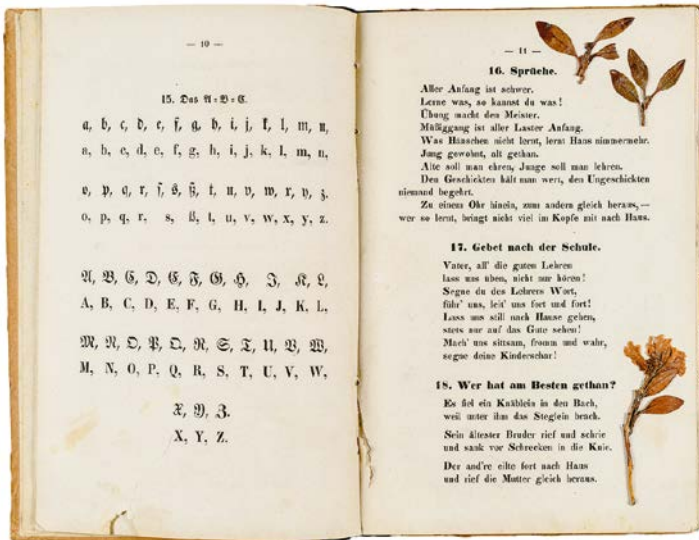 — 10 —
15. Das A=B=C.
a, b, c, d, e, f, g, h, i, j, k, l, m, n,
a, b, c, d, e, f, g, h, i, j, k, l, m, n,
o, p, q, r, ſ, s, ß, t, u, v, w, x, y, z.
o, p, q, r, s, ß, t, u, v, w, x, y, z.
A, B, C, D, E, F, G, H, J, K, L,
A, B, C, D, E, F, G, H, I, J, K, L,
M, N, O, P, Q, R, S, T, U, V, W,
M, N, O, P, Q, R, S, T, U, V, W,
X, Y, Z.
X, Y, Z.
— 11 —
16. Sprüche.
Aller Anfang ist schwer.
Lerne was, so kannst du was!
Übung macht den Meister.
Müßiggang ist aller Laster Anfang.
Was Hänschen nicht lernt, lernt Hans nimmermehr.
Jung gewohnt, alt gethan.
Alte soll man ehren, Junge soll man lehren.
Den Geschickten hält man wert, den Ungeschickten
niemand begehrt.
Zu einem Ohr hinein, zum andern gleich heraus, —
wer so lernt, bringt nicht viel im Kopfe mit nach Haus.
17. Gebet nach der Schule.
Vater, all' die guten Lehren
lass uns üben, nicht nur hören!
Segne du des Lehrers Wort,
führ' uns, leit' uns fort und fort!
Lass uns still nach Hause gehen,
stets nur auf das Gute sehen!
Mach' uns sittsam, fromm und wahr,
segne deine Kinderschar!
18. Wer hat am Besten gethan?
Es fiel ein Knäblein in den Bach,
weil unter ihm das Steglein brach.
Sein ältester Bruder rief und schrie
und sank vor Schrecken in die Knie.
Der and're eilte fort nach Haus
und rief die Mutter gleich heraus.